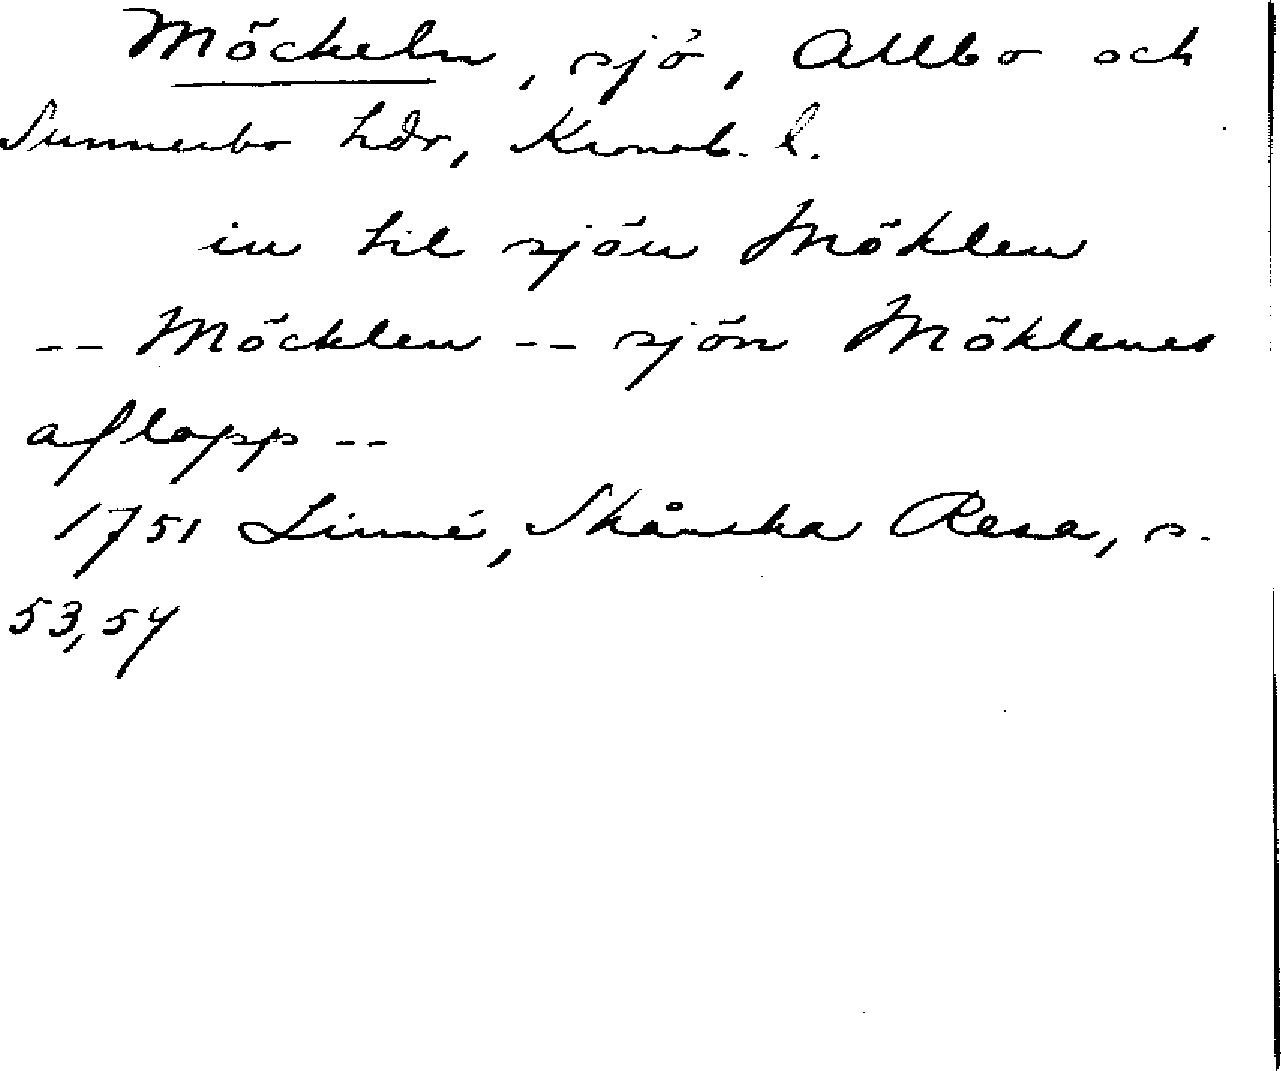 Möckeln, sjö, Allbo och
Sunnerbo hdr, Kronob. l.
in til sjön Möklen
-- Möcklen -- sjön Möklenes
aflopp --
1751 Linné, Skånska Resa, s.
53, 54